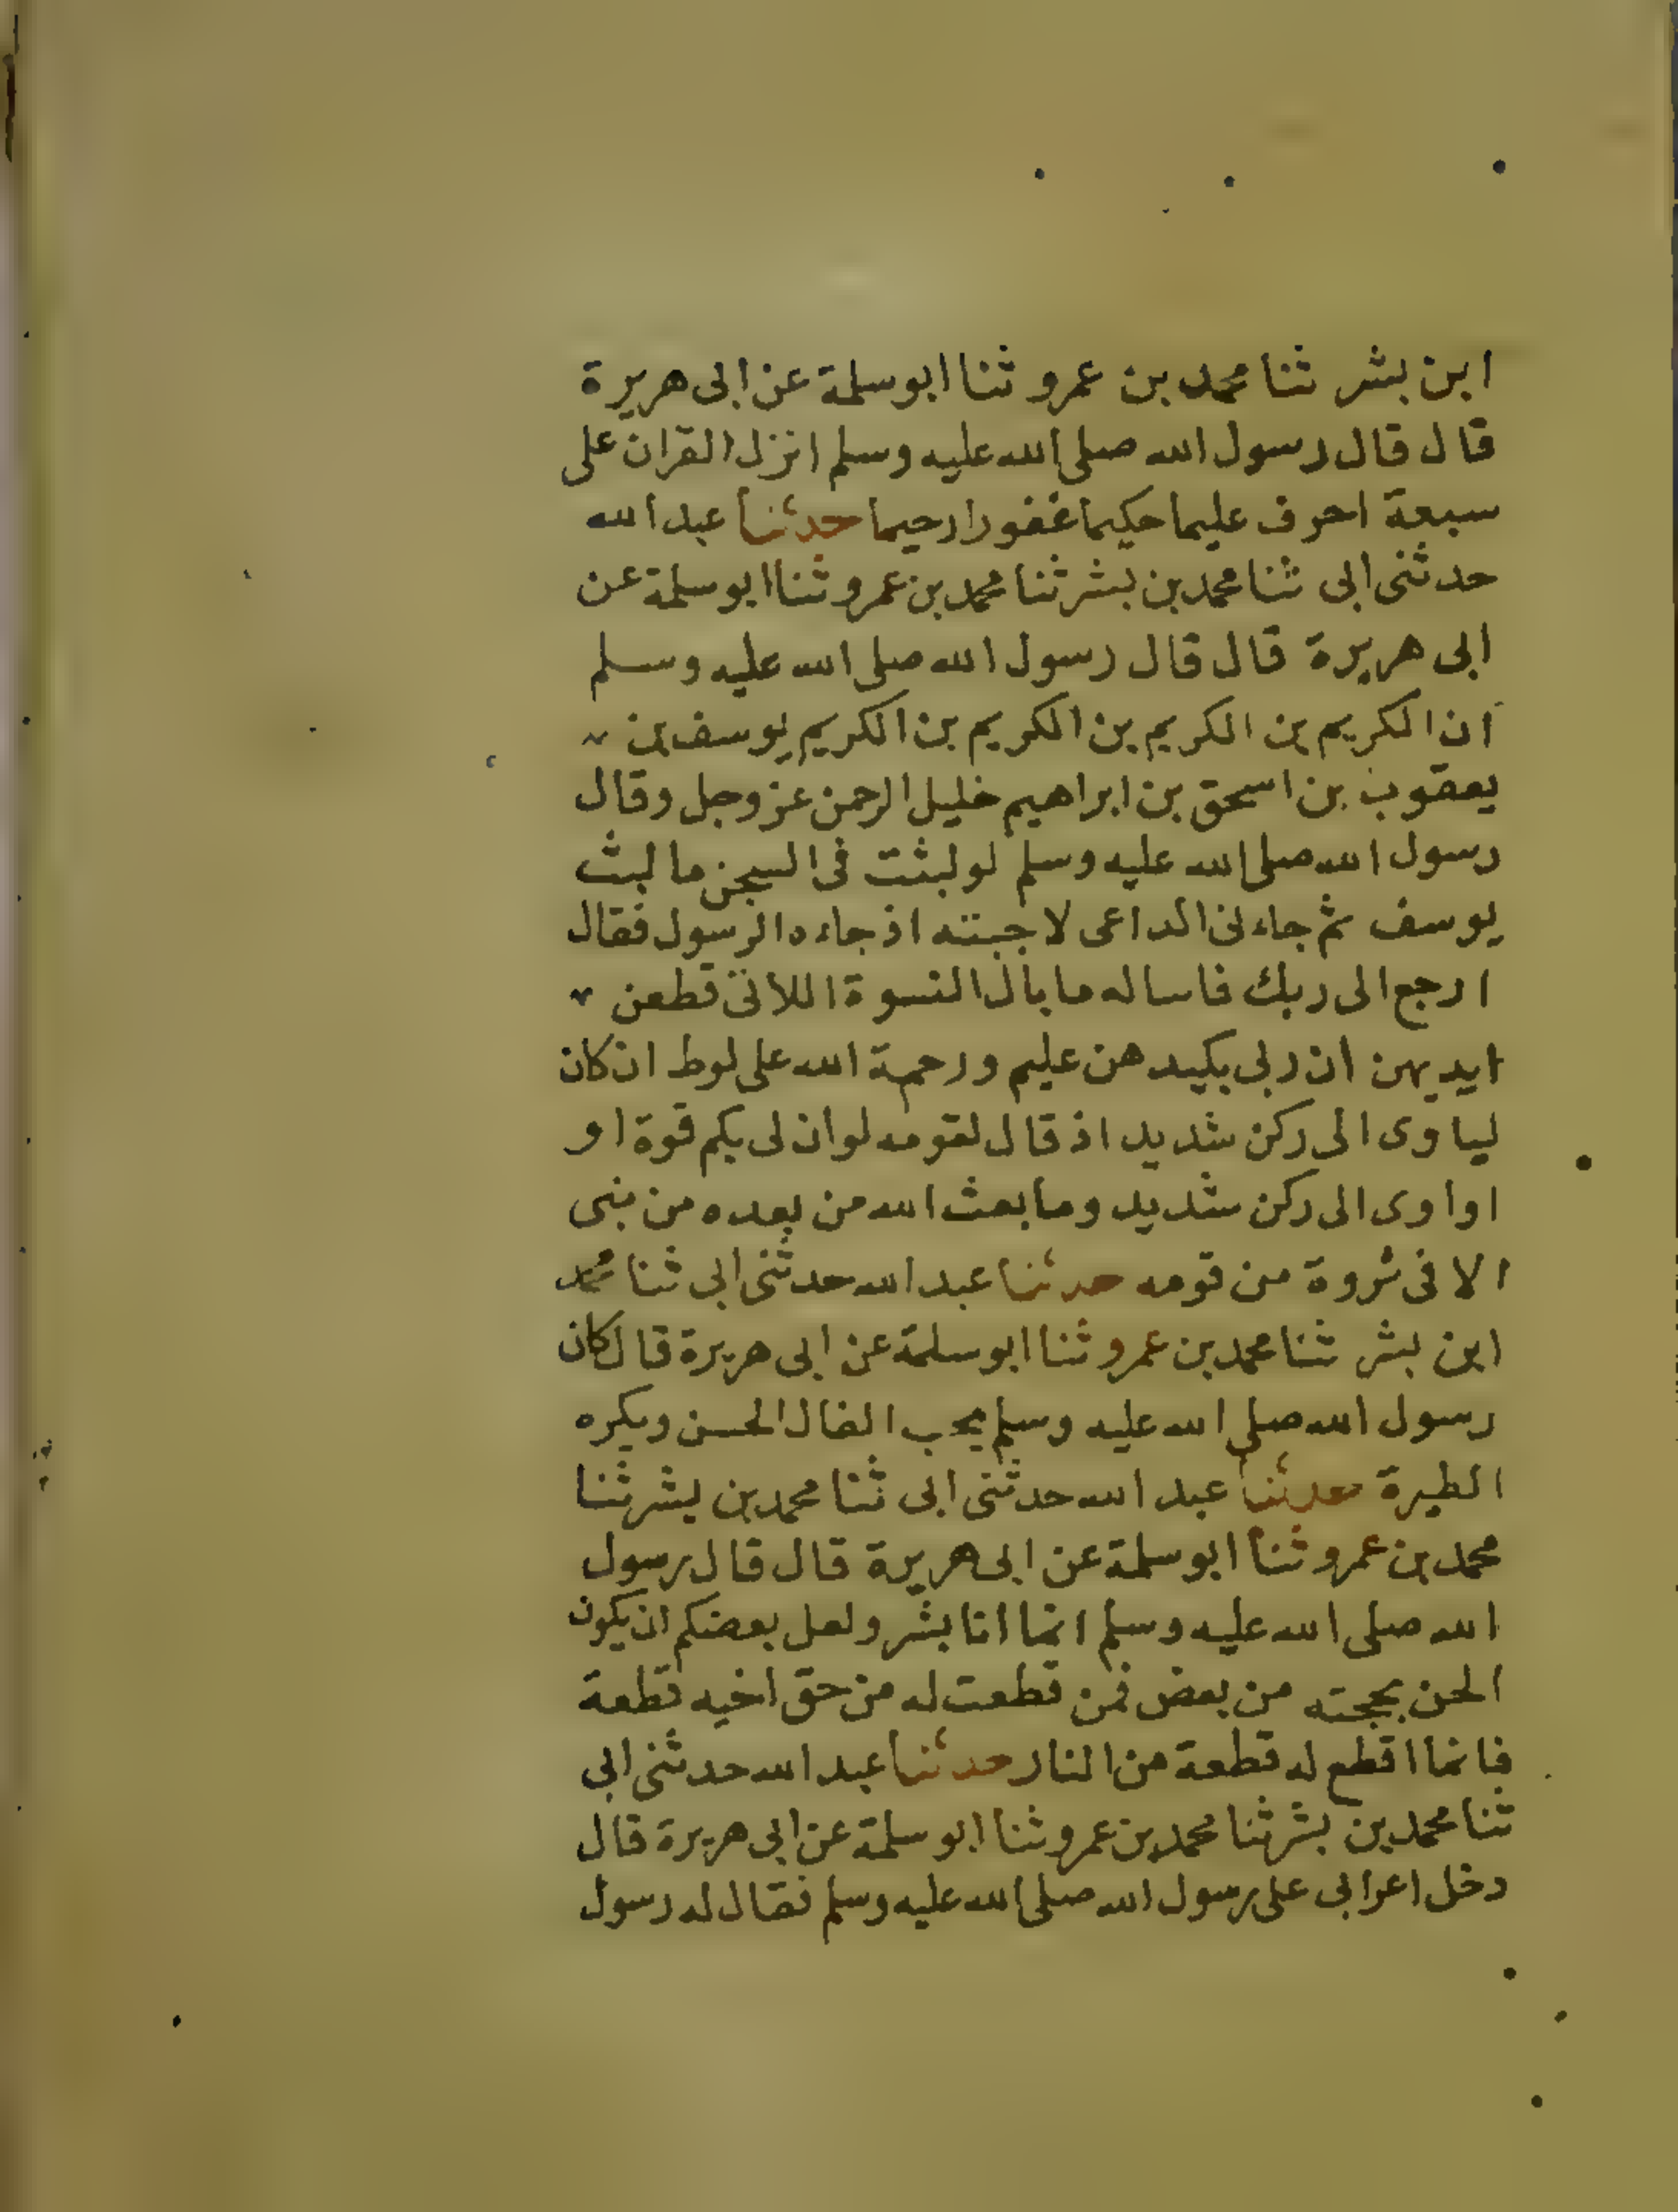 ابن بشر ثنا محمد بن عمرو ثنا ابو سلمة عن ابى هريرة
قال قال رسول الله صلى الله عليه وسلم انزل القران على
سبعة احرف عليما حكيما غفورا رحيما حدثنا عبد الله
حدثنى ابى ثنا محمد بن بشر ثنا محمد بن عمرو ثنا ابو سلمة عن
ابى هريرة قال قال رسول الله صلى الله عليه وسلم
ان الكريم بن الكريم بن الكريم بن الكريم يوسف بن
يعقوب بن اسحق بن ابراهيم خليل الرحمن عز وجل وقال
رسول الله صلى الله عليه وسلم لو لبثت فى السجن ما لبث
يوسف ثم جاءنى الداعى لاجبته اذ جاءه الرسول فقال
ارجع الى ربك فاساله ما بال النسوة اللاتى قطعن
ايديهن ان ربى بكيدهن عليم ورحمة الله على لوط ان كان
لياوى الى ركن شديد اذ قال لقومه لو ان لى بكم قوة او
او اوى الى ركن شديد وما بعث الله من بعده من نبى
الا فى ثروة من قومه حدثنا عبد الله حدثنى ابى ثنا محمد
ابن بشر ثنا محمد بن عمرو ثنا ابو سلمة عن ابى هريرة قال كان
رسول الله صلى الله عليه وسلم يحب الفال الحسن ويكره
الطيرة حدثنا عبد الله حدثنى ابى ثنا محمد بن بشر ثنا
محمد بن عمرو ثنا ابو سلمة عن ابى هريرة قال قال رسول
الله صلى الله عليه وسلم انما انا بشر ولعل بعضكم ان يكون
الحن بحجته من بعض فمن قطعت له من حق اخيه قطعة
فانما اقطع له قطعة من النار حدثنا عبد الله حدثنى ابى
ثنا محمد بن بشر ثنا محمد بن عمرو ثنا ابو سلمة عن ابى هريرة قال
دخل اعرابى على رسول الله صلى الله عليه وسلم فقال له رسول